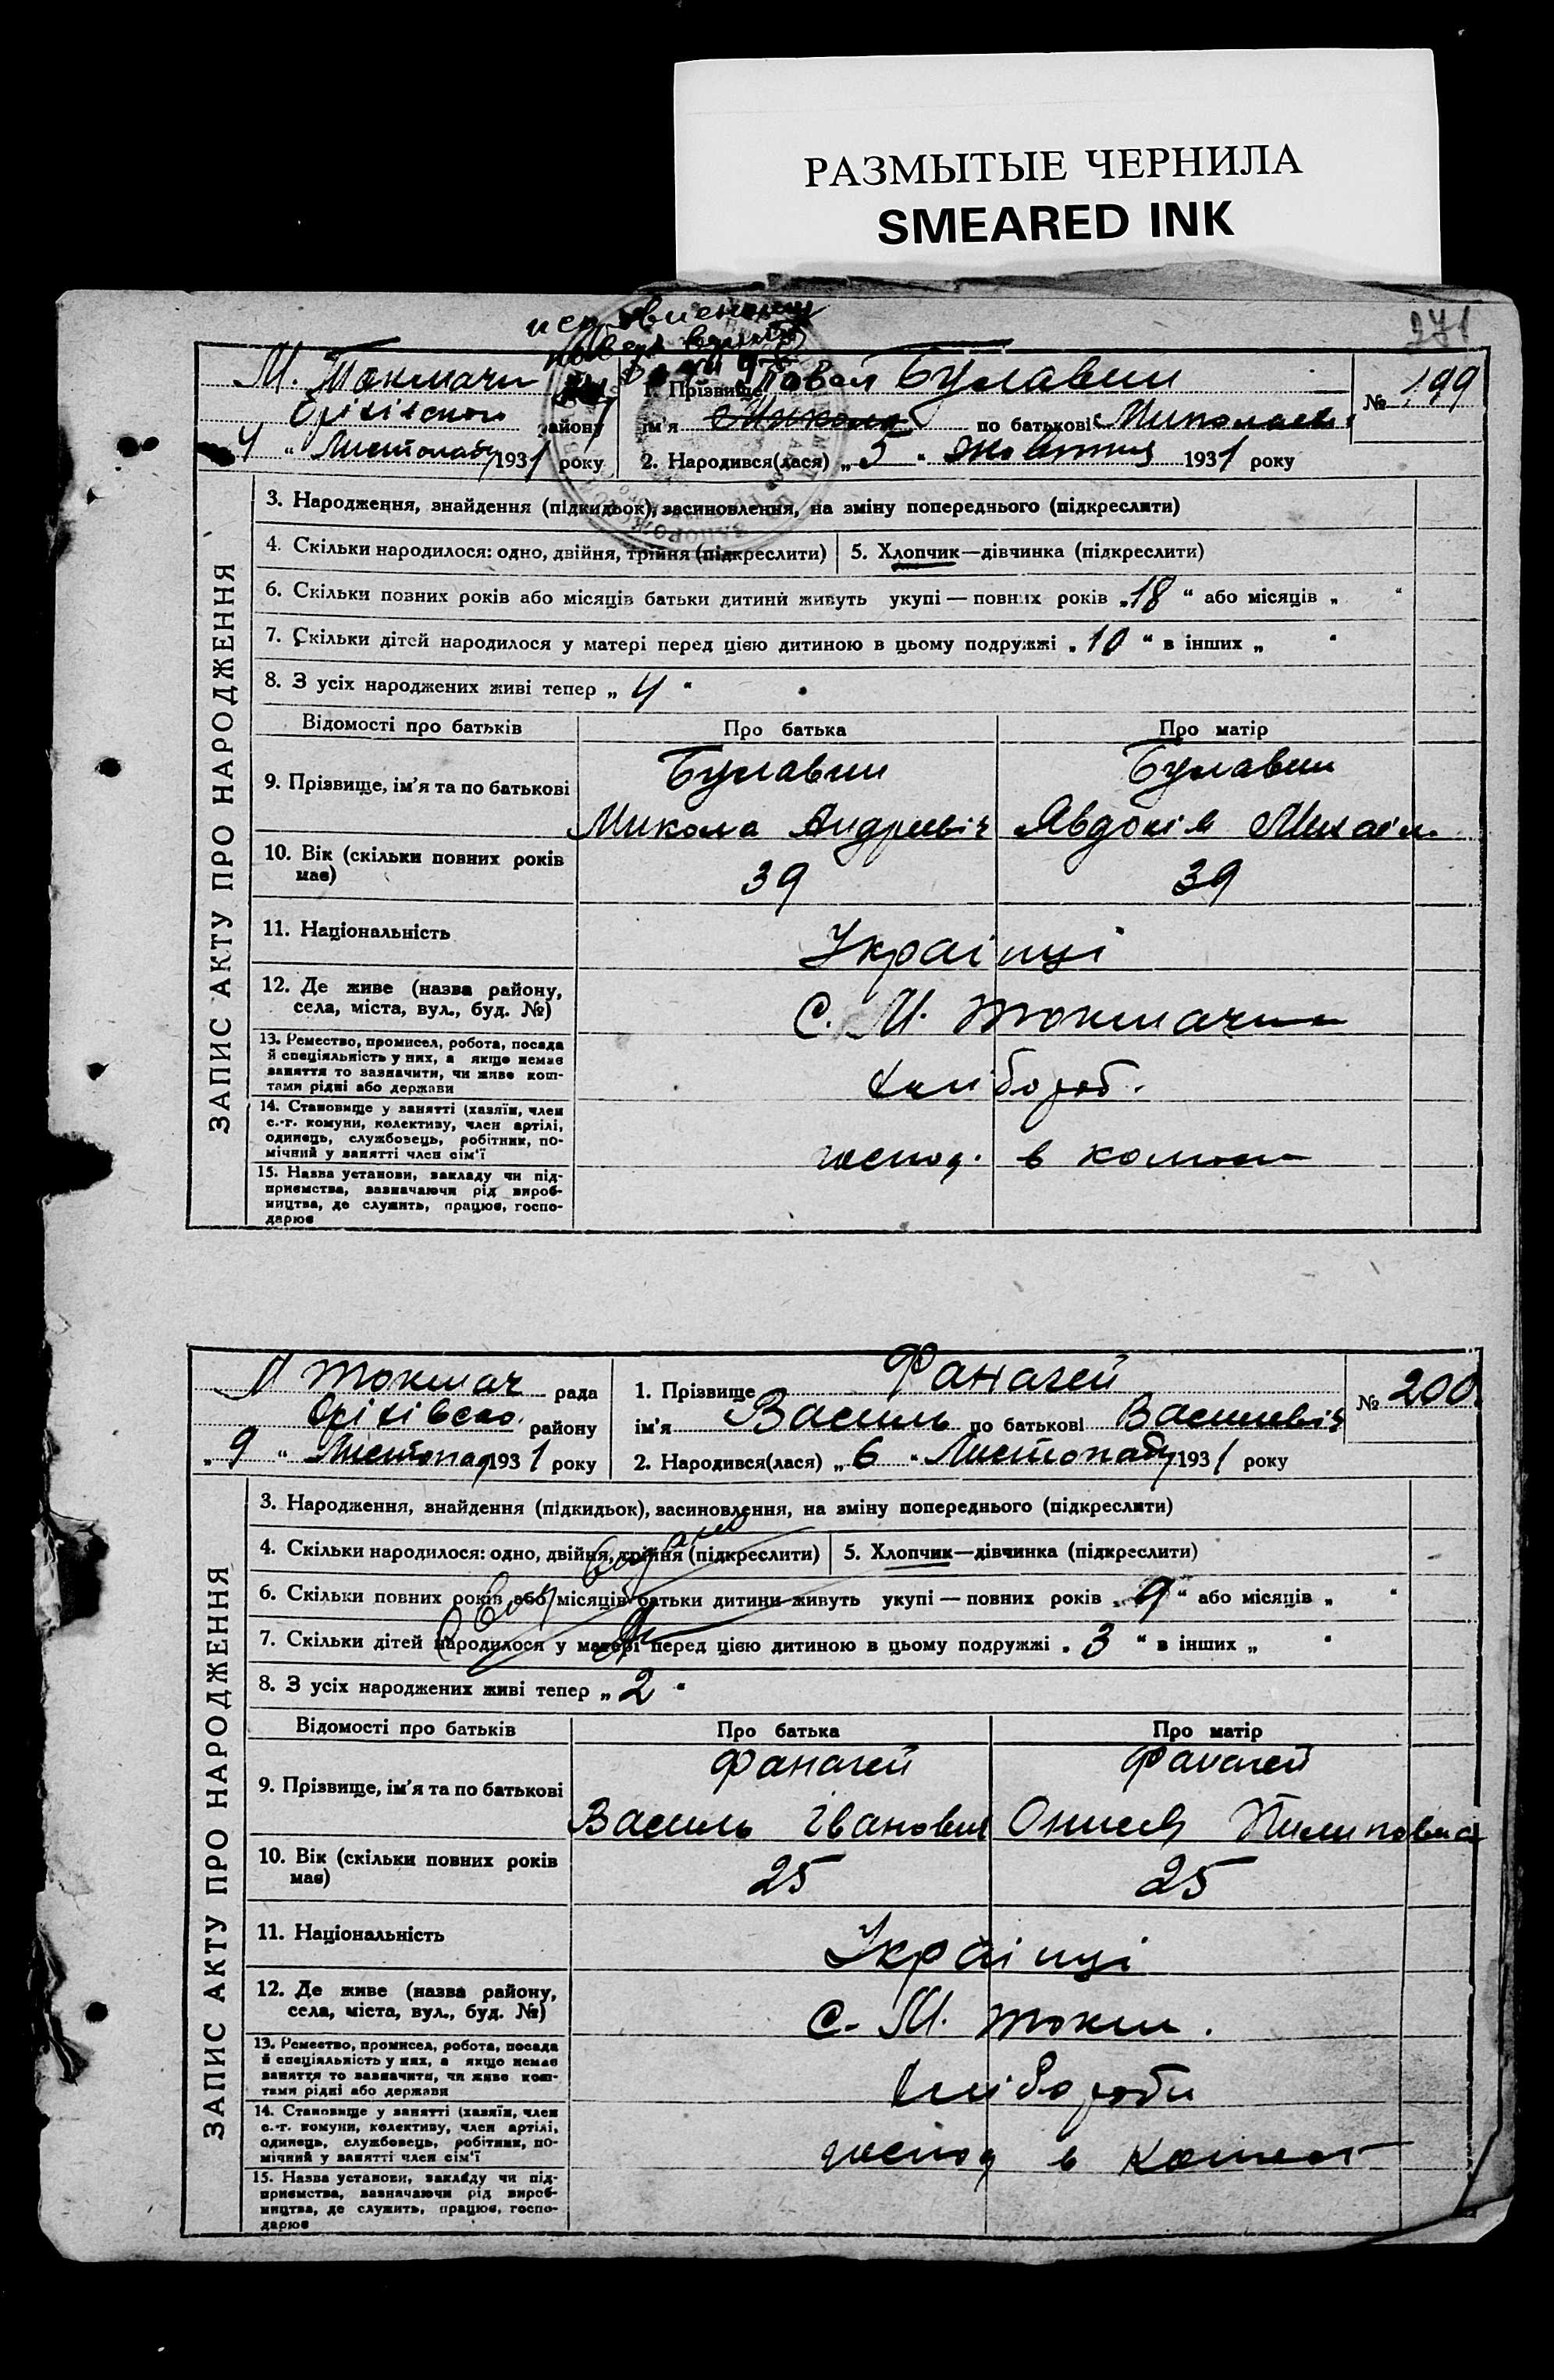 РАЗМЫТЫЕ ЧЕРНИЛА
SMEARED INK
271
М. Токмачк
Оріхівского району
4 " Листопаду 1931 року
1. Прізвище Павел Булавин
ім'я Микола по батькові Миколаев.
№ 199
2. Народився(лася) „ 5 " Жовтня 1931 року
ЗАПИС АКТУ ПРО НАРОДЖЕННЯ
3. Народження, знайдення (підкидьок), засиновлення, на зміну попереднього (підкреслити)
4. Скільки народилося: одно, двійня, трійня (підкреслити) 5. Хлопчик—дівчинка (підкреслити)
6. Скільки повних років або місяців батьки дитини живуть укупі — повних років „18 " або місяців „ "
7. Скільки дітей народилося у матері перед цією дитиною в цьому подружжі „ 10 " в інших „ "
8. З усіх народжених живі тепер „ 4 "
Відомості про батьків Про батька Про матір
9. Прізвище, ім'я та по батькові
Булавин Булавин
Микола Андреевіч Явдокія Михаіл.
10. Вік (скільки повних років має)
39 39
11. Національність
Украінці
12. Де живе (назва району, села, міста, вул., буд. №)
С. М. Токмачк
13. Ремество, промисел, робота, посада й спеціяльність у них, а якщо немає заняття то зазначити, чи живе коштами рідні або держави
хлібороб.
14. Становище у занятті (хазяїн, член с.-г. комуни, колективу, член артілі, одинець, службовець, робітник, помічний у занятті член сім'ї
господ. в
15. Назва установи, закладу чи підприємства, зазначаючи рід виробництва, де служить, працює, господарює
М Токмач рада
Оріхівско. району
„ 9 " Листопад 1931 року
1. Прізвище Фаначей
ім'я Василь по батькові Васильевіч
№ 200
2. Народився(лася) „ 6 " Листопаду 1931 року
ЗАПИС АКТУ ПРО НАРОДЖЕННЯ
3. Народження, знайдення (підкидьок), засиновлення, на зміну попереднього (підкреслити)
4. Скільки народилося: одно, двійня, трійня (підкреслити) 5. Хлопчик—дівчинка (підкреслити)
6. Скільки повних років або місяців батьки дитини живуть укупі — повних років „ 9 " або місяців „ "
7. Скільки дітей народилося у матері перед цією дитиною в цьому подружжі „ 3 " в інших „ "
8. З усіх народжених живі тепер „ 2 "
Відомості про батьків Про батька Про матір
9. Прізвище, ім'я та по батькові
Фаначей Фаначей
Василь Іванович Онися Пилиповна
10. Вік (скільки повних років має)
25 25
11. Національність
Украінці
12. Де живе (назва району, села, міста, вул., буд. №)
С. М. Токм.
13. Ремество, промисел, робота, посада й спеціяльність у них, а якщо немає заняття то зазначити, чи живе коштами рідні або держави
хлібороби
14. Становище у занятті (хазяїн, член с.-г. комуни, колективу, член артілі, одинець, службовець, робітник, помічний у занятті член сім'ї
господ в
15. Назва установи, закладу чи підприємства, зазначаючи рід виробництва, де служить, працює, господарює